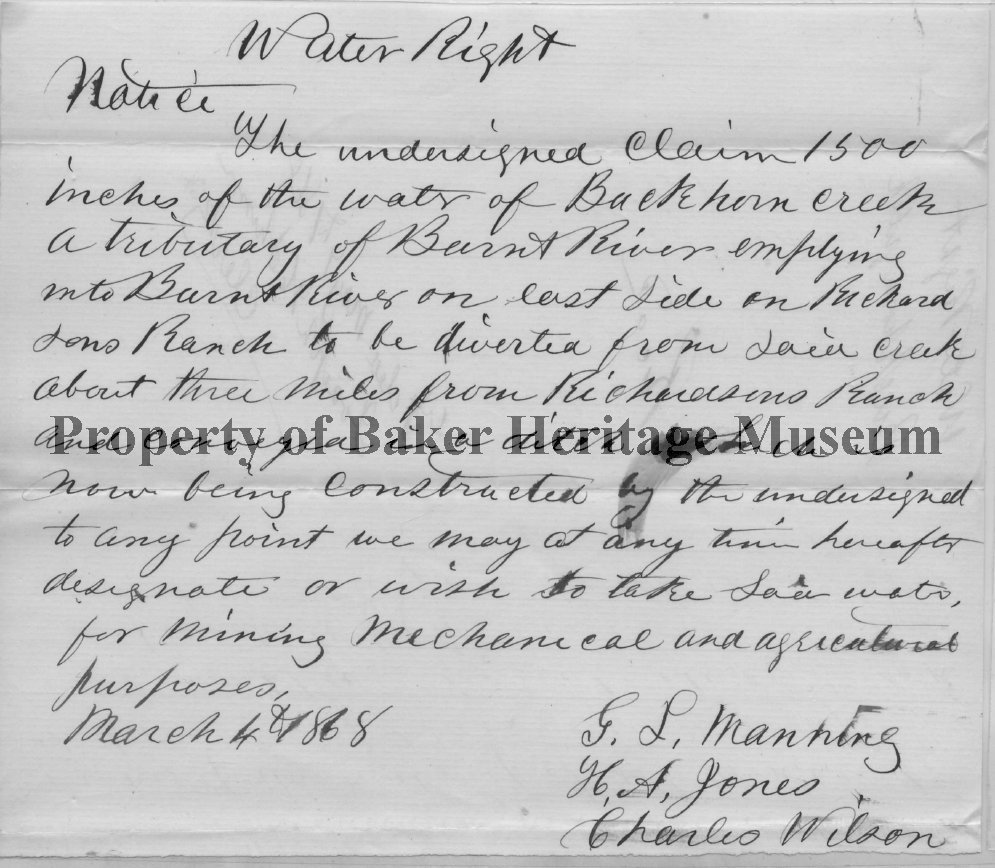 Water Right
Notice
The undersigned Claim 1500
inches of the water of Buckhorn creek
a tributary of Burnt River emptying
into Burnt River on east side on Richard
sons Ranch to be diverted from said creek
about three miles from Richardsons Ranch
Property of Baker Heritage Museum
and conveyed in a ditch which is
now being constructed by the undersigned
to any point we may at any time hereafter
designate or wish to take said water,
for mining Mechanical and agricultural
purposes,
March 4th 1868
G. L. Manning
H. A. Jones
Charles Wilson